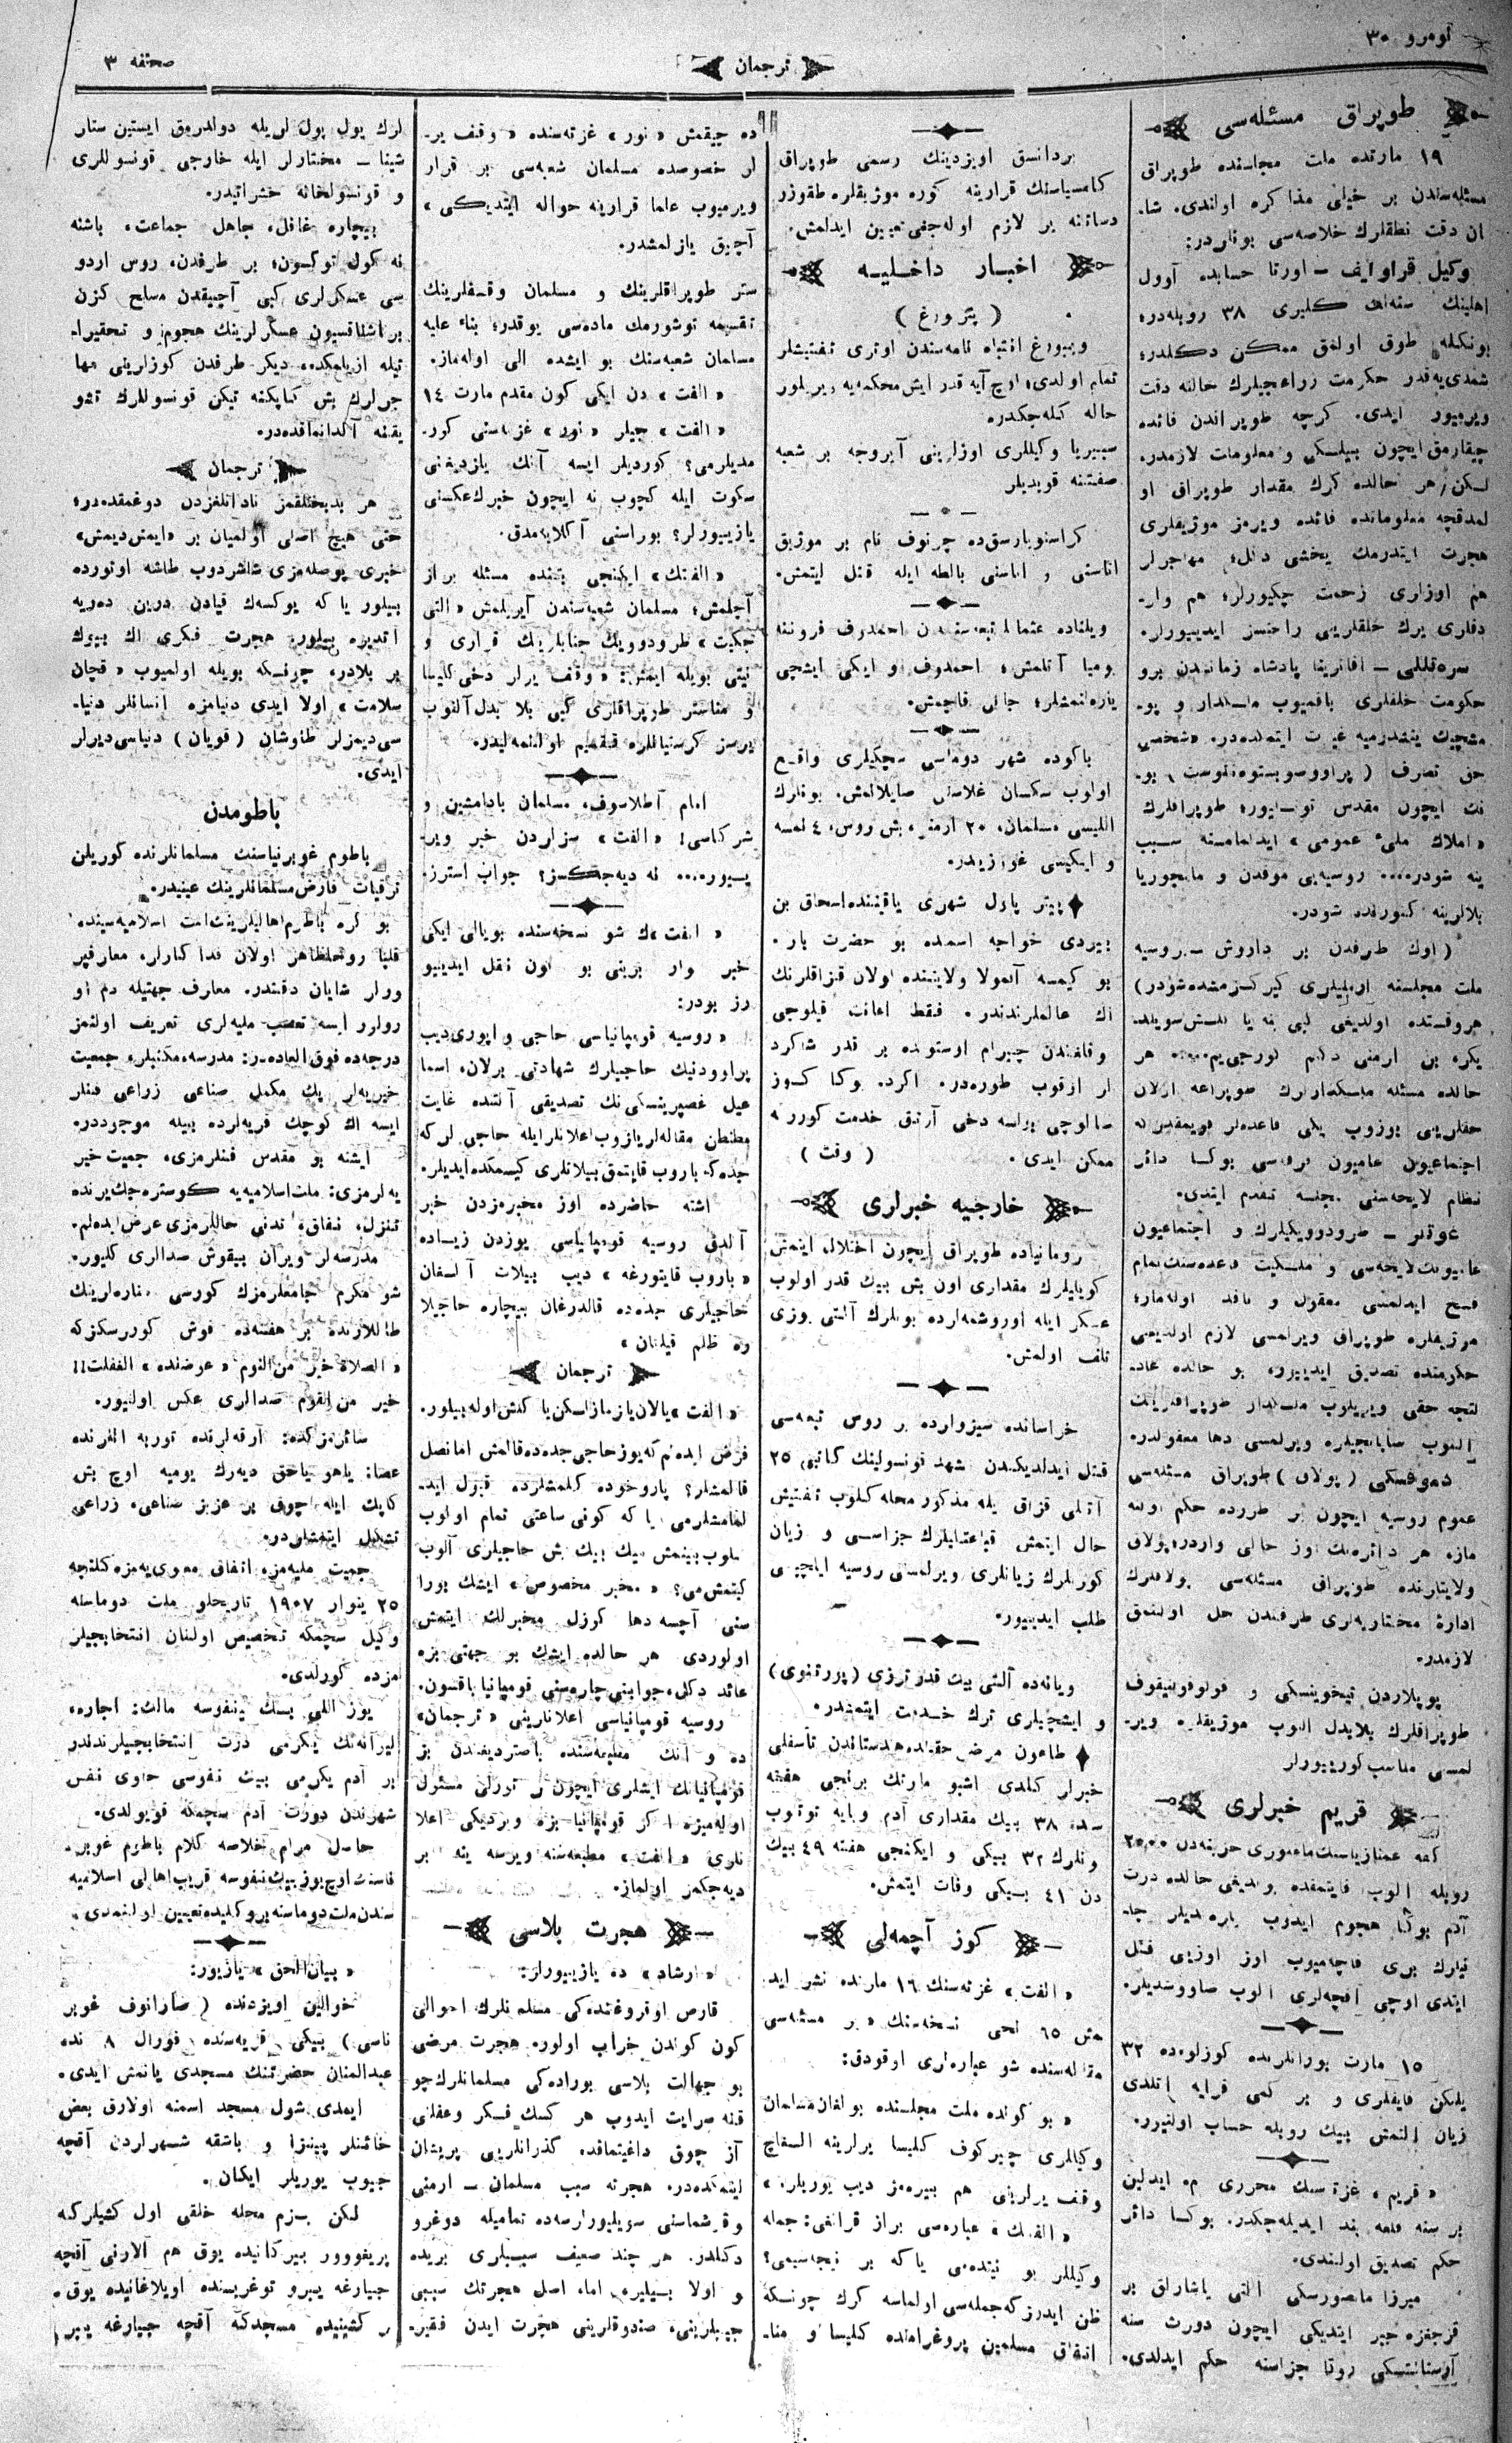 نومرو ٣٠
ترجمان
صحیفه ٣
طوپراق مسئله‌سی
١٩ مارتده ملت مجلسنده طوپراق
مسئله‌سندن بر خیلی مذاکره اولندی. شا-
ان دقت نطقلرك خلاصه‌سی بونلردر:
وکیل قراوایف – اورتا حسابده آوول
اهلینك سنه‌لك کلیری ٣٨ روبله‌در؛
بونکله طوق اولمق ممکن دکلدر؛
شمدی‌یه‌قدر حکومت زراعجیلرك حالنه دقت
ویرمیور ایدی. کرچه طوپراقدن فائده
چیقارمق ایچون بیلسکی و معلومات لازمدر.
لکن هر حالده کرك مقدار طوپراق او
لمدقچه معلوماتده فائده ویرمز موژیقلری
هجرت ایتدرمك یخشی دکل؛ مهاجرلر
هم اوزلری زحمت چکیورلر؛ هم وار-
دقلری یرك خلقلرینی راحتسز ایدییورلر.
حکومت خلقلری باقمیوب ملکدار و بو-
حق تصرف
نك ایچون مقدس
« املاك ملی عمومی » ایدلمامسنه سبب
ینه شودر.... روسیه‌یی موقدن و مانجوریا
بلالرینه کتورنده شودر.
( اوك طرفدن بر داروش – روسیه
حالده مسئله ملکدارلرك طوپراغه اولان
نظام لایحه‌سنی مجلسه تقدیم ایتدی.
فسخ ایدلمسی معقول و نافد اوله‌ماز؛
موژیقلره طوپراق ویرلمسی لازم اولدیغی
حکومتده تصدیق ایدییور، بو حالده عاد-
آلنوب سابانجیلره ویرلمسی دها معقولدر.
دموفسکی ( پولاق ) طوپراق مسئله‌سی
عموم روسیه ایچون بر طرزده حکم اولنه
ماز. هر دائره‌نك اوز حالی واردر؛ پولاق
ولایتلرنده طوپراق مسئله‌سی پولاقلرك
ادارۀ مختاریه‌لری طرفندن حل اولنمق
لازمدر.
پوپلاردن تیخوینسکی و قولوقولنیقوف
طوپراقلرك بلابدل النوب موژیقلره ویر-
لمسی مناسب کورییورلر
قریم خبرلری
روبله آلوب قایتمقده بولندیغی حالده درت
آدم بوکا هجوم ایدوب یاره‌دیلر. جا-
نیلرك بری قاچه‌میوب اوز اوزینی قتل
ایتدی اوچی آقچه‌لری آلوب صاووشدیلر.
١٥ مارت بورانلرنده کوزلوه‌ده ٣٢
یلکن قایقلری و بر کمی قرایه آتلدی
زیان التمش بیك روبله حساب اولنیور.
« قریم » غزته‌سنك محرری م. ایدلین
بر سنه قلعه بند ایدیله‌جکدر. بوکا دائر
حکم تصدیق اولندی.
میرزا مانصورسکی التی یاشارلق بر
قزجغزه جبر ایتدیکی ایچون دورت سنه
آرستانتسکی روتا جزاسنه حکم ایدلدی.
بردانسق اویزدینك رسمی طوپراق
کامسیاسنك قرارینه کوره موژیقلره طقوزر
دساتنه یر لازم اوله‌جغی تعیین ایدلمش.
اخبار داخلیه
( پتربورغ )
ویبورغ انتباه نامه‌سندن اوتری تفتیشلر
تمام اولدی؛ اوچ آیه قدر ایش محکمه‌یه ویریلور
حاله کله‌جکدر.
سیبریا وکیللری اوزلرینی آیروجه بر شعبه
صفتنه قویدیلر
کراسنویارسق‌ده چرنوف نام بر موژیق
اتاسنی و اناسنی بالطه ایله قتل ایتمش.
بومبا آتلمش؛ احمدوف و ایکی ایشچی
یاره‌لنمشلر؛ جانی قاچمش.
باکوده شهر دوماسی سچکیلری واقع
اولوب سکسان غلاسنی صایلانمش. بونلرك
اللیسی مسلمان، ٢٠ ارمنی، بش روس، ٤ نمسه
و ایکیسی غورزیدر.
پیتر پاول شهری یاقیننده اسحاق بن
بیردی خواجه اسمنده بو حضرت بار.
بو کیمسه آقمولا ولایتنده اولان قزاقلرنك
اك عالملرندندر. فقط اعانت قیلوجی
وقاغندن چیرام اوستونده بر قدر شاکرد
لر اوقوب طوره‌در. اکرد بوکا کوز
صالوچی بولسه دخی آرتق خدمت کوررنه
ممکن ایدی. ( وقت )
خارجیه خبرلری
رومانیاده طوپراق ایچون اختلال ایتمش
کویلیلرك مقداری اون بش بیك قدر اولوب
عسکر ایله اوروشمه‌لرده بونلرك آلتی یوزی
تلف اولمش.
خراسانده سبزوارده بر روس تبعه‌سی
قتل ایدلدیکندن مشهد قونسولینك کاتبی ٢٥
آتلی قزاق ایله مذکور محله کلوب تفتیش
حال ایتمش قباحتلیلرك جزاسی و زیان
کورنلرك زیانلری ویرلمسنی روسیه ایلچیسی
طلب ایدییور.
ویانه‌ده آلتی بیك قدر ترزی (پورتنوی)
و ایشچیلری ترك خدمت ایتمشدر.
طاعون مرضی حقنده هندستاندن تأسفلی
خبرلر کلدی اشبو مارتك برنجی هفته
سنده ٣٨ بیك مقداری آدم وبایه توتوب
ونلرك ٣٢ بیکی و ایکنجی هفته ٤٩ بیك
دن ٤١ بیکی وفات ایتمش.
کوز آچمه‌لی
« الفت » غزته‌سنك ١٦ مارتده نشر اید
مش ٦٥ نجی نسخه‌سنك « یر مسئله‌سی
مقاله‌سنده شو عباره‌لری اوقودق:
« بو کونده ملت مجلسنده بولغان مسلمان
وکیللری چیرکوف کلیسا یرلرینه السفاچ
وقف یرلرینی هم بیره‌مز دیب یوریلر. »
« الفتك » عباره‌سی براز قرانقی: جمله
وکیللر بو نیتده‌می یاکه بر نیچه‌سیمی؟
ظن ایدرز که جمله‌سی اولماسه کرك چونسکه
اتفاق مسلمین پروغرامنده کلیسا و منا-
ستر طوپراقلرینك و مسلمان وقفلرینك
تقسیمه توشورمك ماده‌سی یوقدر؛ بناء علیه
مسلمان شعبه‌سنك بو ایشده الی اوله‌ماز.
ده چیقمش « نور » غزته‌سنده « وقف یر-
لر خصوصده مسلمان شعبه‌سی بر قرار
ویرمیوب علما قرارینه حواله ایتدیکی »
آچیق یازلمشدر.
« الفت » دن ایکی کون مقدم مارت ١٤
« الفت » جیلر « نور » غزته‌سنی کور-
مدیلرمی؟ کوردیلر ایسه آنك یازدیغنی
سکوت ایله کچوب نه ایچون خبرك عکسنی
یازییورلر؟ بوراسنی آکلایه‌مدق.
« الفتك » ایکنجی بتنده مسئله براز
آچلمش؛ مسلمان شعبه‌سندن آیریلمش « التی
جکیت » طرودوویك جنابلرینك قراری و
نیتی بویله ایمش: « وقف یرلر دخی کلیسا
و مناستر طوپراقلری کبی بلا بدل آلنوب
یرسز کرستیانلره تقسیم اولنمه‌لیدر.
امام آطلاسوف، مسلمان بادامشین و
شرکاسی! « الفت » سزلردن خبر ویر-
ییور.... نه دیه‌جکسز؟ جواب استرز.
« الفت »ك شو نسخه‌سنده بویالی ایکی
خبر وار برینی بو اون نقل ایدییو
رز بودر:
« روسیه قومپانیاسی حاجی و اپوری‌دیب
پراوودنیك حاجیلرك شهادتی برلان، اسما
عیل غصپرینسکی‌نك تصدیقی آلتنده غایت
مطنطن مقاله‌لر یازوب اعلانلر ایله حاجی لرکه
جده‌که باروب قایتمق بیلاتلری کیسمکده ایدیلر.
اشته حاضرده اوز مخبرمزدن خبر
آلدق روسیه قومپانیاسی یوزدن زیاده
« باروب قایتورغه » دیب بیلات آلغان
حاجیلری جده‌ده قالدرغان بیچاره حاجیلا
ره ظلم قیلنان »
ترجمان
« الفت » یالان یازماز لکن یا کلش اوله بیلور.
فرض ایده‌م که یوز حاجی جده‌ده قالمش اما نصل
قالمشلر؟ پاروخوده کلمشلرده قبول اید-
لمامشلرمی یا که کونی ساعتی تمام اولوب
کیتمش‌می؟ « مخبر مخصوص » ایشك بورا
سنی آچسه دها کوزل مخبرلك ایتمش
اولوردی هر حالده ایشك بو جهتی بزه
عائد دکل، جوابنی چاره‌سنی قومپانیا باقسون.
روسیه قومپانیاسی اعلانلرینی « ترجمان »
ده و آنك مطبعه‌سنده باصتردیغندن بز
قومپانیانك ایشلری ایچون بر تورلی مسئول
اوله‌میزه. اکر قومپانیا بزه ویردیکی اعلا
نلری « الفت » مطبعه‌سنه ویرسه ینه بر
دیه‌جکمز اولماز.
هجرت بلاسی
« ارشاد » ده یازییورلر:
قارص اوقروغنده‌کی مسلمانلرك احوالی
کون کوندن خراب اولور، هجرت مرضی
بو جهالت بلاسی بوراده‌کی مسلمانلرك چو
قنه سرایت ایدوب هر کسك فکر و عقلنی
آز چوق داغیتماقده، گذرانلرینی پریشان
ایتمکده‌در. هجرته سبب مسلمان – ارمنی
وقرشماسنی سویلیورلرسه‌ده تمامیله دوغرو
دکلدر. هر چند ضعیف سببلری بریده
و اولا بیلیر، اما، اصل هجرتك سببی
جیبلرینی، صندوقلرینی هجرت ایدن فقیر-
لرك پول پول لریله دولدرمق ایستین ستار
شینا – مختارلر ایله خارجی قونسوللری
و قونسولخانه حشراتیدر.
بیچاره غافل، جاهل جماعت، باشنه
نه کول توکسون، بر طرفدن، روس اردو
سی عسکرلری کبی آچیقدن مسلح کزن
داشناقسیون عسکرلرینك هجوم و تحقیرا-
تیله ازیلمکده، دیکر طرفدن کوزلرینی مها
جرلرك بش کاپکنه تیکن قونسوللرك تشو
یقنه آلدانماقده‌در.
ترجمان
هر بدبختلقمز نادانلغزدن دوغمقده‌در؛
حتی هیچ اصلی اولمیان بر « ایمش دیمش »
خبری پوصله‌مزی شاشردوب طاشه اوتورده
بیلور یا که یوکسك قیادن درین دره‌یه
اتدیره بیلور. هجرت فکری اك بیوك
بر بلادر، چونسکه بویله اولمیوب « قچان
سلامت » اولا ایدی دنیامزه انسانلر دنیا-
سی‌دیمزلر طاوشان ( قویان ) دنیاسی‌دیرلر
ایدی.
باطومدن
باطوم غوبرنیاسنك مسلمانلرنده کوریلن
ترقیات قارص مسلمانلرینك عینیدر.
بو کره باطوم اهالیلرینك امت اسلامیه‌سینده
قلبا روحلظاهر اولان فدا کارلر، معارفپر
ورلر شایان دقتدر. معارف جهتیله دم او
رولرر ایسه تعصب ملیه‌لری تعریف اولنمز
درجه‌ده فوق العاده‌در: مدرسه، مکتبلر، جمعیت
خیریه‌لر پك مکمل صناعی زراعی فنلر
ایسه اك کوچك قریه‌لرده بیله موجوددر.
ایشته بو مقدس فنلرمزی، جمعیت خیر
یه‌لرمزی: ملت اسلامیه‌یه کوستره جك یرنده
تنزل، نفاق، تدنی حاللرمزی عرض ایده‌لم.
مدرسه‌لر ویران بیقوش صدالری کلیور.
شو مکرم جامعلرمزك کورسی مناره‌لرینك
طاللارنده بر هفته‌ده قوش کوررسکز که
« الصلاة خیر من النوم » عوضنده « الغفلت!!
خیر من القوم صدالری عکس اولنیور.
سائرمزکده: آرقه‌لرنده توربه اللرنده
عصا: یاهو یاحق دیه‌رك یومیه اوچ بش
کاپك ایله، چوق بر عزیز صناعی، زراعی
تشکیل ایتمشلردر.
جمیت ملیه‌مز، اتفاق معنوی‌یه‌مزه کلنجه
٢٥ ینوار ١٩٠٧ تاریخلو ملت دوماسنه
وکیل سچمکه تخصیص اولنان انتخابجیلر
مزده کورلدی.
یوز اللی بیك نفوسه مالك: اجاره،
لیزانه‌نك یکرمی درت انتخابجیلرندندر
بر آدم یکرمی بیك نفوسی حاوی نفس
شهرندن دورت آدم سچمکه قویولدی.
حاصل مرام خلاصه کلام باطوم غوبر-
ناسنك اوچ یوز بیك نفوسه قریب اهالی اسلامیه
سندن ملت دوماسنه بر وکیلده تعیین اولنمدی.
« بیان الحق » یازیور:
خوالین اویزدنده ( صاراتوف غوبر
ناسی ) بیکی قریه‌سنده فورال ٨ نده
عبدالمنان حضرتنك مسجدی یانمش ایدی.
ایمدی شول مسجد اسمنه اولارق بعض
خائنلر پینزا و باشقه شهرلردن آقچه
جیوب یوریلر ایکان.
لکن بزم محله خلقی اول کشیلرکه
پریغوور بیرکانیده یوق هم آلارنی آقچه
جیارغه ییبرو توغریسنده اویلاغانیده یوق.